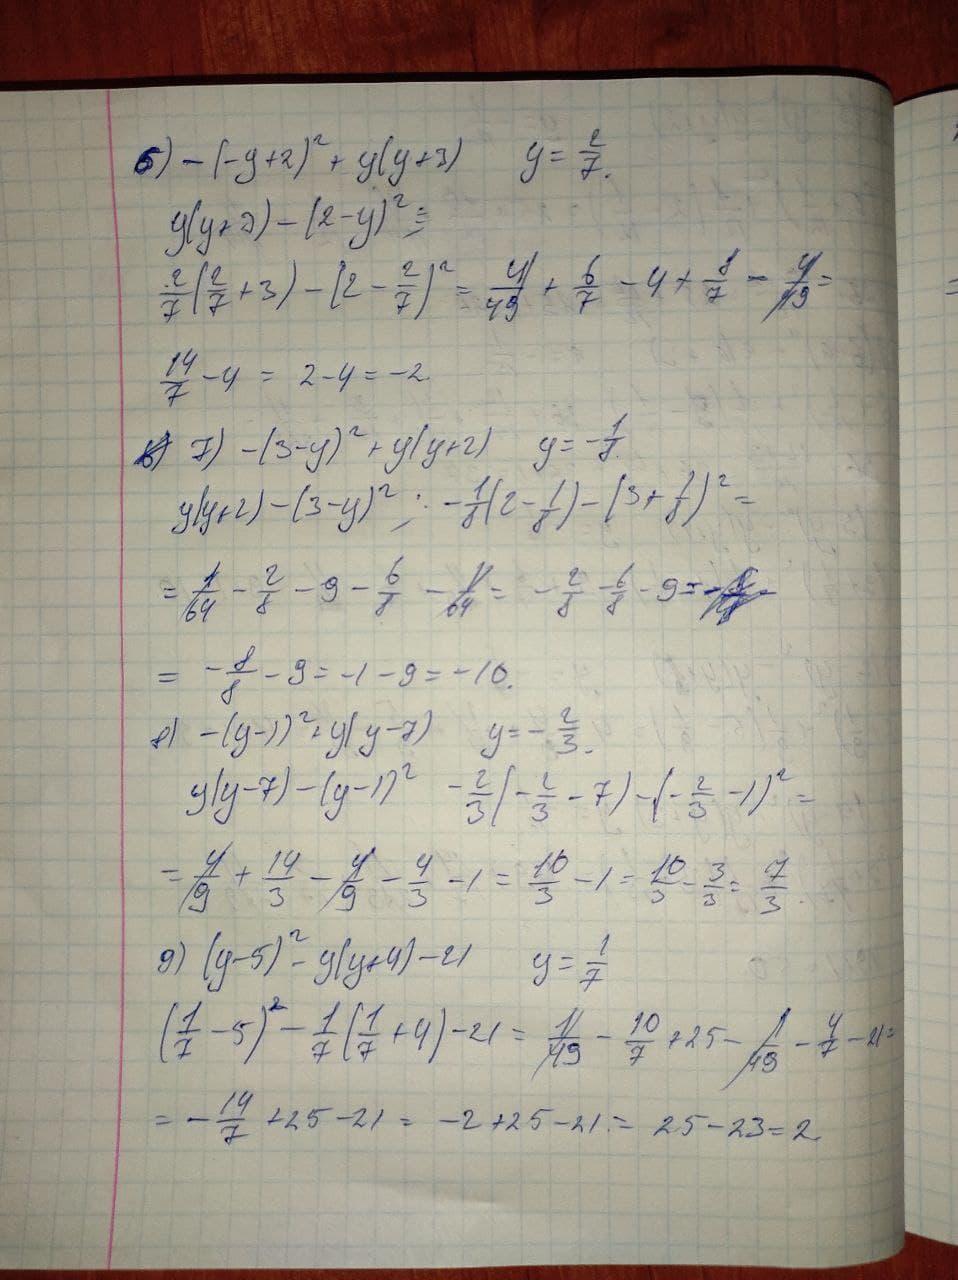 6) -(-y+2)² + y(y+3)    y = 2/7.
y(y+3) - (2-y)² =
2/7(2/7+3) - (2 - 2/7)² = 4/49 + 6/7 - 4 + 8/7 - 4/49 =
14/7 - 4 = 2-4 = -2.
7) -(3-y)² + y(y+2)    y = -1/8.
y(y+2) - (3-y)² ; -1/8(2 - 1/8) - (3 + 1/8)² =
= 1/64 - 2/8 - 9 - 6/8 - 1/64 = -2/8 - 6/8 - 9 =
= -8/8 - 9 = -1 - 9 = -10.
8) -(y-1)² + y(y-7)    y = -2/3.
y(y-7) - (y-1)²    -2/3(-2/3 - 7) - (-2/3 - 1)² =
= 4/9 + 14/3 - 4/9 - 4/3 - 1 = 10/3 - 1 = 10/3 - 3/3 = 7/3.
9) (y-5)² - y(y+4) - 21    y = 1/7
(1/7 - 5)² - 1/7(1/7 + 4) - 21 = 1/49 - 10/7 + 25 - 1/49 - 4/7 - 21 =
= -14/7 + 25 - 21 = -2 + 25 - 21 = 25 - 23 = 2.